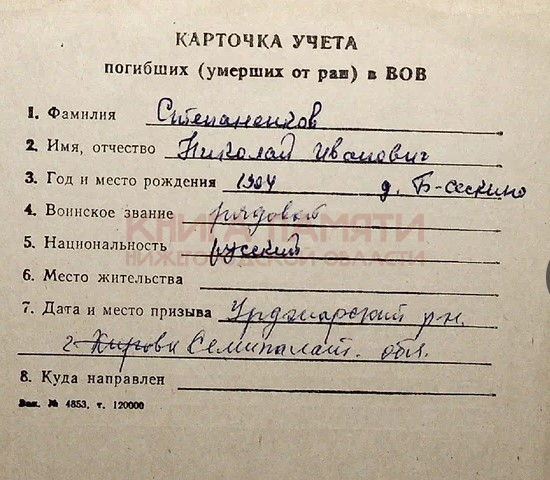 КАРТОЧКА УЧЕТА
погибших (умерших от ран) в ВОВ
1. Фамилия Степаненков
2. Имя, отчество Николай Иванович
3. Год и место рождения 1904 д. Б-сескино
4. Воинское звание рядовой
КНИГА ПАМЯТИ
5. Национальность русский
НИЖЕГОРОДСКОЙ ОБЛАСТИ
6. Место жительства
7. Дата и место призыва Урджарский р-н.
г. Кирова Семипалат. обл.
8. Куда направлен
Зак. № 4853, т. 120000